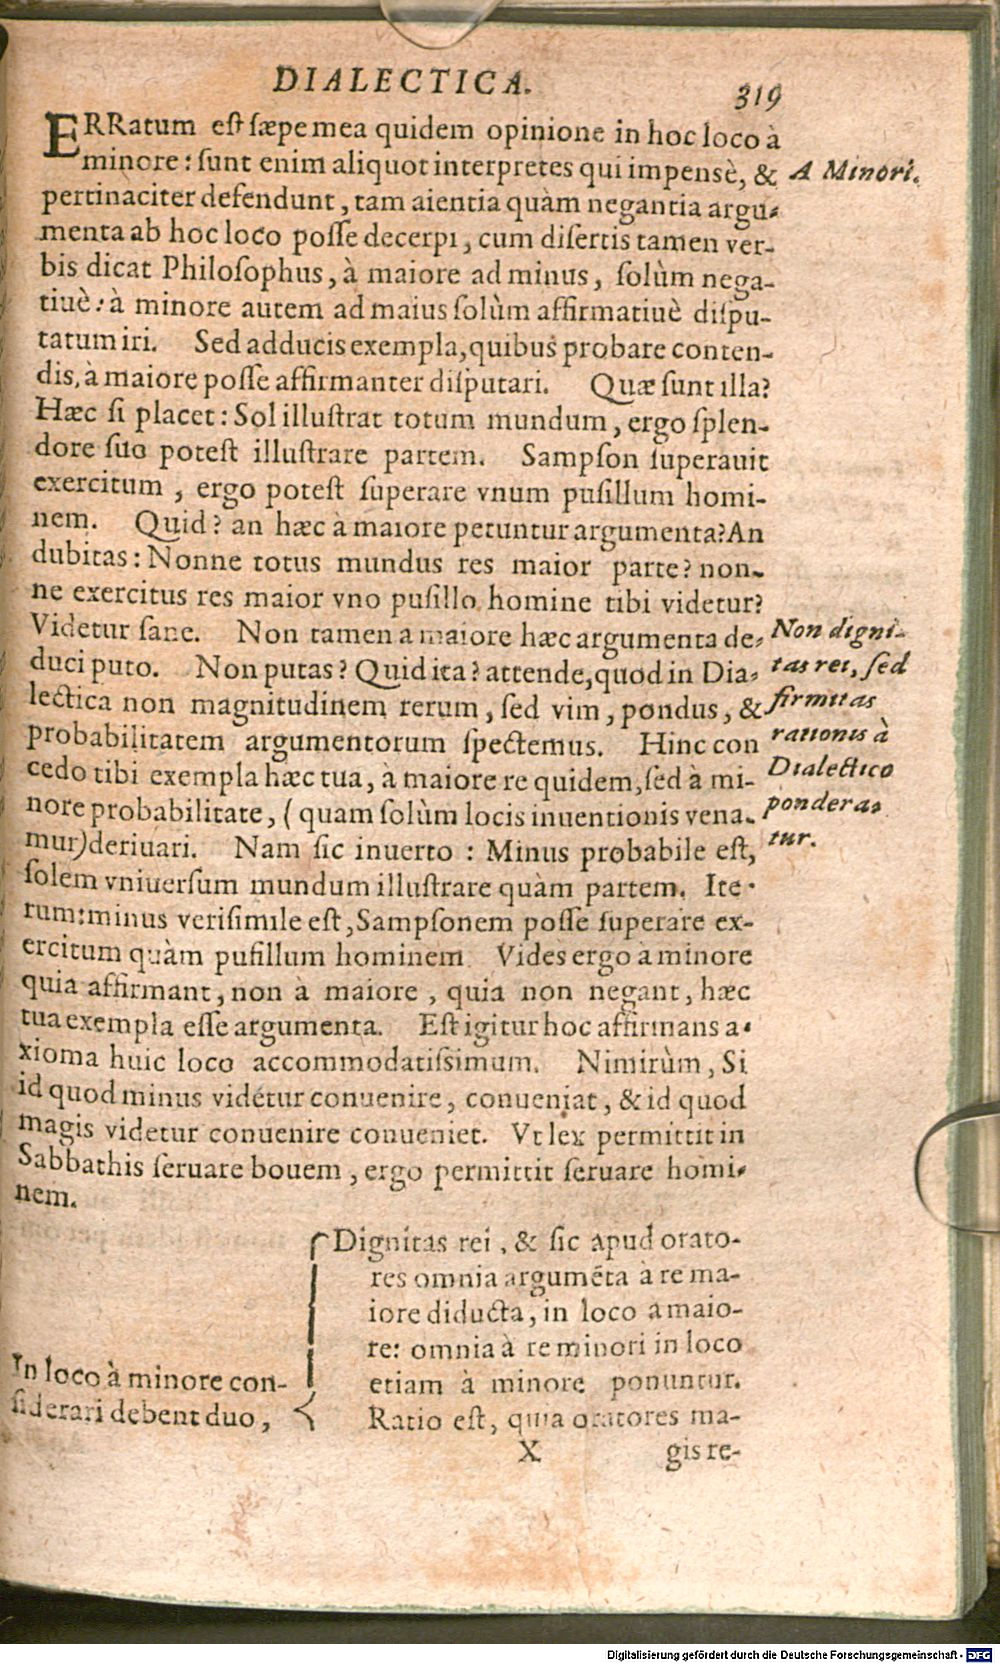 DIALECTICA.
319
ERRatum est sæpe mea quidem opinione in hoc loco à
minore: sunt enim aliquot interpretes qui impensè, &
A Minori.
pertinaciter defendunt, tam aientia quàm negantia argu-
menta ab hoc loco posse decerpi, cum disertis tamen ver-
bis dicat Philosophus, à maiore ad minus, solùm nega-
tiuè: à minore autem ad maius solùm affirmatiuè dispu-
tatum iri. Sed adducis exempla, quibus probare conten-
dis, à maiore posse affirmanter disputari. Quæ sunt illa?
Hæc si placet: Sol illustrat totum mundum, ergo splen-
dore suo potest illustrare partem. Sampson superauit
exercitum, ergo potest superare vnum pusillum homi-
nem. Quid? an hæc à maiore petuntur argumenta? An
dubitas: Nonne totus mundus res maior parte? non-
ne exercitus res maior vno pusillo homine tibi videtur?
Videtur sane. Non tamen a maiore hæc argumenta de-
duci puto. Non putas? Quid ita? attende, quod in Dia-
lectica non magnitudinem rerum, sed vim, pondus, &
probabilitatem argumentorum spectemus. Hinc con
cedo tibi exempla hæc tua, à maiore re quidem, sed à mi-
nore probabilitate, (quam solùm locis inuentionis vena-
mur) deriuari. Nam sic inuerto: Minus probabile est,
Non digni-
tas rei, sed
firmitas
rationis à
Dialectico
pondera-
tur.
solem vniuersum mundum illustrare quàm partem. Ite-
rum: minus verisimile est, Sampsonem posse superare ex-
ercitum quàm pusillum hominem. Vides ergo à minore
quia affirmant, non à maiore, quia non negant, hæc
tua exempla esse argumenta. Est igitur hoc affirmans a-
xioma huic loco accommodatissimum. Nimirùm, Si
id quod minus videtur conuenire, conueniat, & id quod
magis videtur conuenire conueniet. Vt lex permittit in
Sabbathis seruare bouem, ergo permittit seruare homi-
nem.
In loco à minore con-
siderari debent duo,
Dignitas rei, & sic apud orato-
res omnia argumēta à re ma-
iore diducta, in loco a maio-
re: omnia à re minori in loco
etiam à minore ponuntur.
Ratio est, quia oratores ma-
X
gis re-
Digitalisierung gefördert durch die Deutsche Forschungsgemeinschaft - DFG